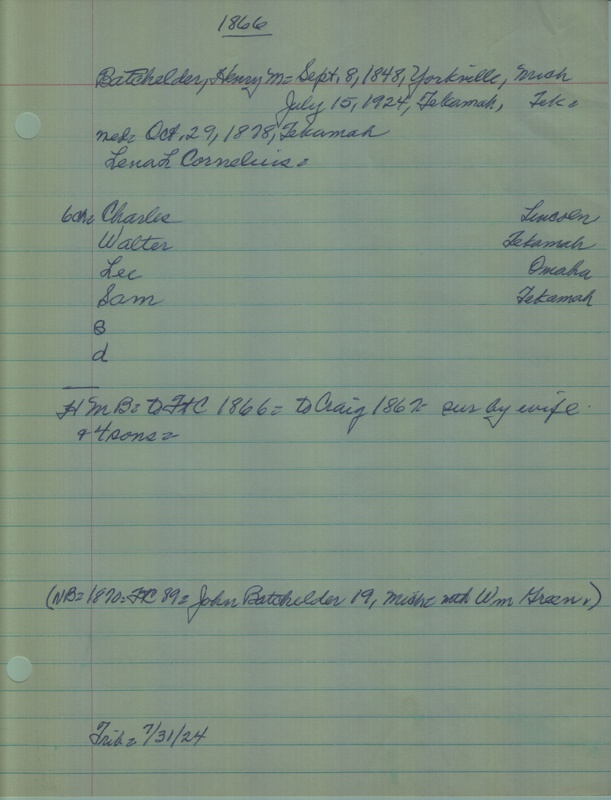 1866
Batchelder, Henry M= Sept. 8, 1848, Yorkville, Mich
July 15, 1924, Tekamah, Tek=
med= Oct. 29, 1878, Tekamah
Lena L Cornelius=
6ch= Charles Lincoln
Walter Tekamah
Lee Omaha
Sam Tekamah
s
d
H M B= to Ft C 1866= to Craig 1867= sur by wife
& 4 sons=
(NB= 1870= FtC 89= John Batchelder 19, Mich= with Wm Green.)
Trib= 7/31/24